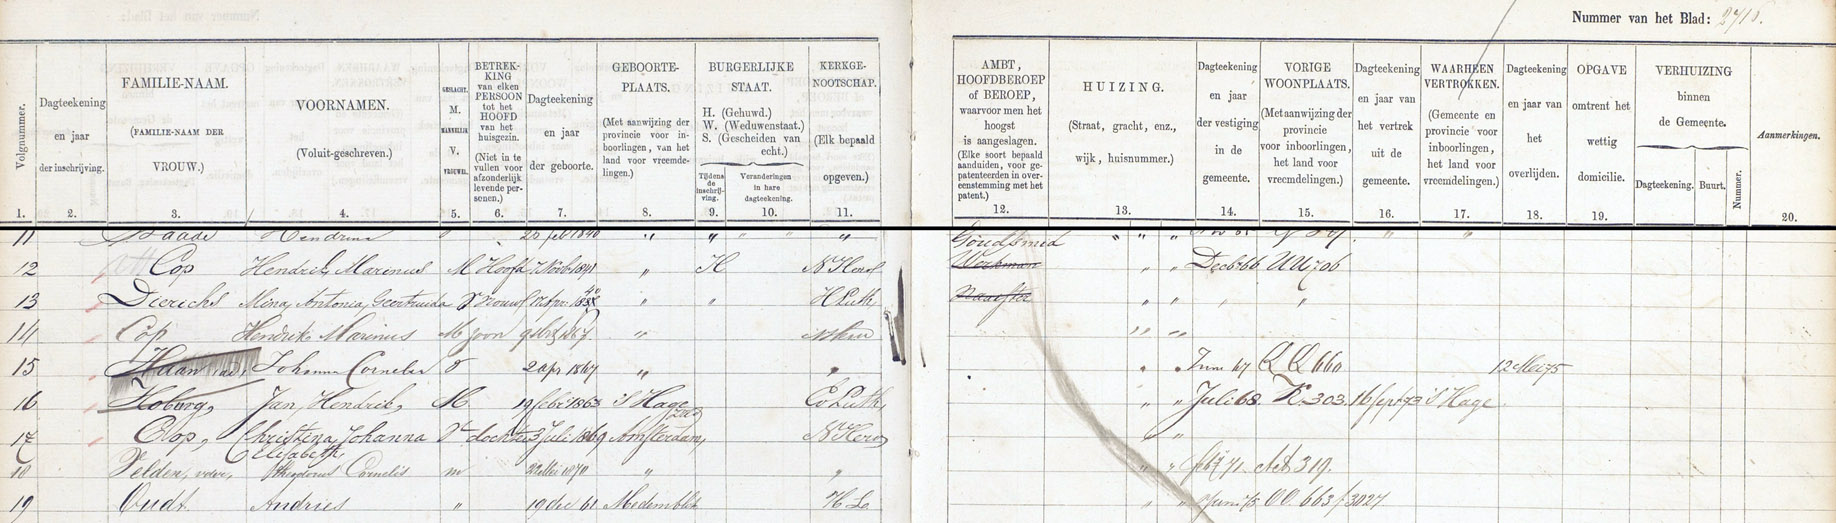 Nummer van het Blad: 2716.
Volgnummer.
1.
Dagteekening
en jaar
der inschrijving.
2.
FAMILIE-NAAM.
(FAMILIE-NAAM DER
VROUW.)
3.
VOORNAMEN.
(Voluit-geschreven.)
4.
GESLACHT.
M.
MANNELIJK
V.
VROUWEL.
5.
BETREK-
KING
van elken
PERSOON
tot het
HOOFD
van het
huisgezin.
(Niet in te
vullen voor
afzonderlijk
levende per-
sonen.)
6.
Dagteekening
en jaar
der geboorte.
7.
GEBOORTE-
PLAATS.
(Met aanwijzing der
provincie voor in-
boorlingen, van het
land voor vreemde-
lingen.)
8.
BURGERLIJKE
STAAT.
H. (Gehuwd.)
W. (Weduwenstaat.)
S. (Gescheiden van
echt.)
Tijdens
de
inschrij-
ving.
9.
Veranderingen
in hare
dagteekening.
10.
KERKGE-
NOOTSCHAP.
(Elk bepaald
opgeven.)
11.
AMBT,
HOOFDBEROEP
of BEROEP,
waarvoor men het
hoogst
is aangeslagen.
(Elke soort bepaald
aanduiden, voor ge-
patenteerden in over-
eenstemming met het
patent.)
12.
HUIZING.
(Straat, gracht, enz.,
wijk, huisnummer.)
13.
Dagteekening
en jaar
der vestiging
in de
gemeente.
14.
VORIGE
WOONPLAATS.
(Met aanwijzing der
provincie
voor inboorlingen,
het land voor
vreemdelingen.)
15.
Dagteekening
en jaar van
het vertrek
uit de
gemeente.
16.
WAARHEEN
VERTROKKEN.
(Gemeente en
provincie voor
inboorlingen,
het land voor
vreemdelingen.)
17.
Dagteekening
en jaar van
het
overlijden.
18.
OPGAVE
omtrent het
wettig
domicilie.
19.
VERHUIZING
binnen
de Gemeente.
Dagteekening.
Buurt.
Nummer.
Aanmerkingen.
20.
11 Baade Hendrina 1840 " " " " " Goudsmid " " "
12 Cop Hendrik Marinus M Hoofd 7 Novb 1841 " H N Herv Werkman " " Decb 66 UU 706
13 Dierichs Mina Antonia Geertruida V vrouw 17 Apr. " " H Luth Naaister " " " "
14 Cop Hendrik Marinus M zoon 9 1867 " N Herv " "
15 Haan Johanna Cornelia V 2 Apr 1867 " " " " Juni 67 QQ 660 12 Mei 75
16 Koburg, Jan Hendrik, M. 19 febr 1863 's Hage Ev Luth " " Juli 68. K. 303. 16 Sept 73 's Hage
17 Cop, Christina Johanna V dochter 3 Juli 1869 Amsterdam, N Herv "
Elisabeth
18 Velden, v der, Theodorus Cornelis m 22 Mei 1870 " " " " feb 71 Act 319.
19 Oudt Andries " 19 dec 61 Medemblik H L. " " Juni 75 OO. 663 f 3027